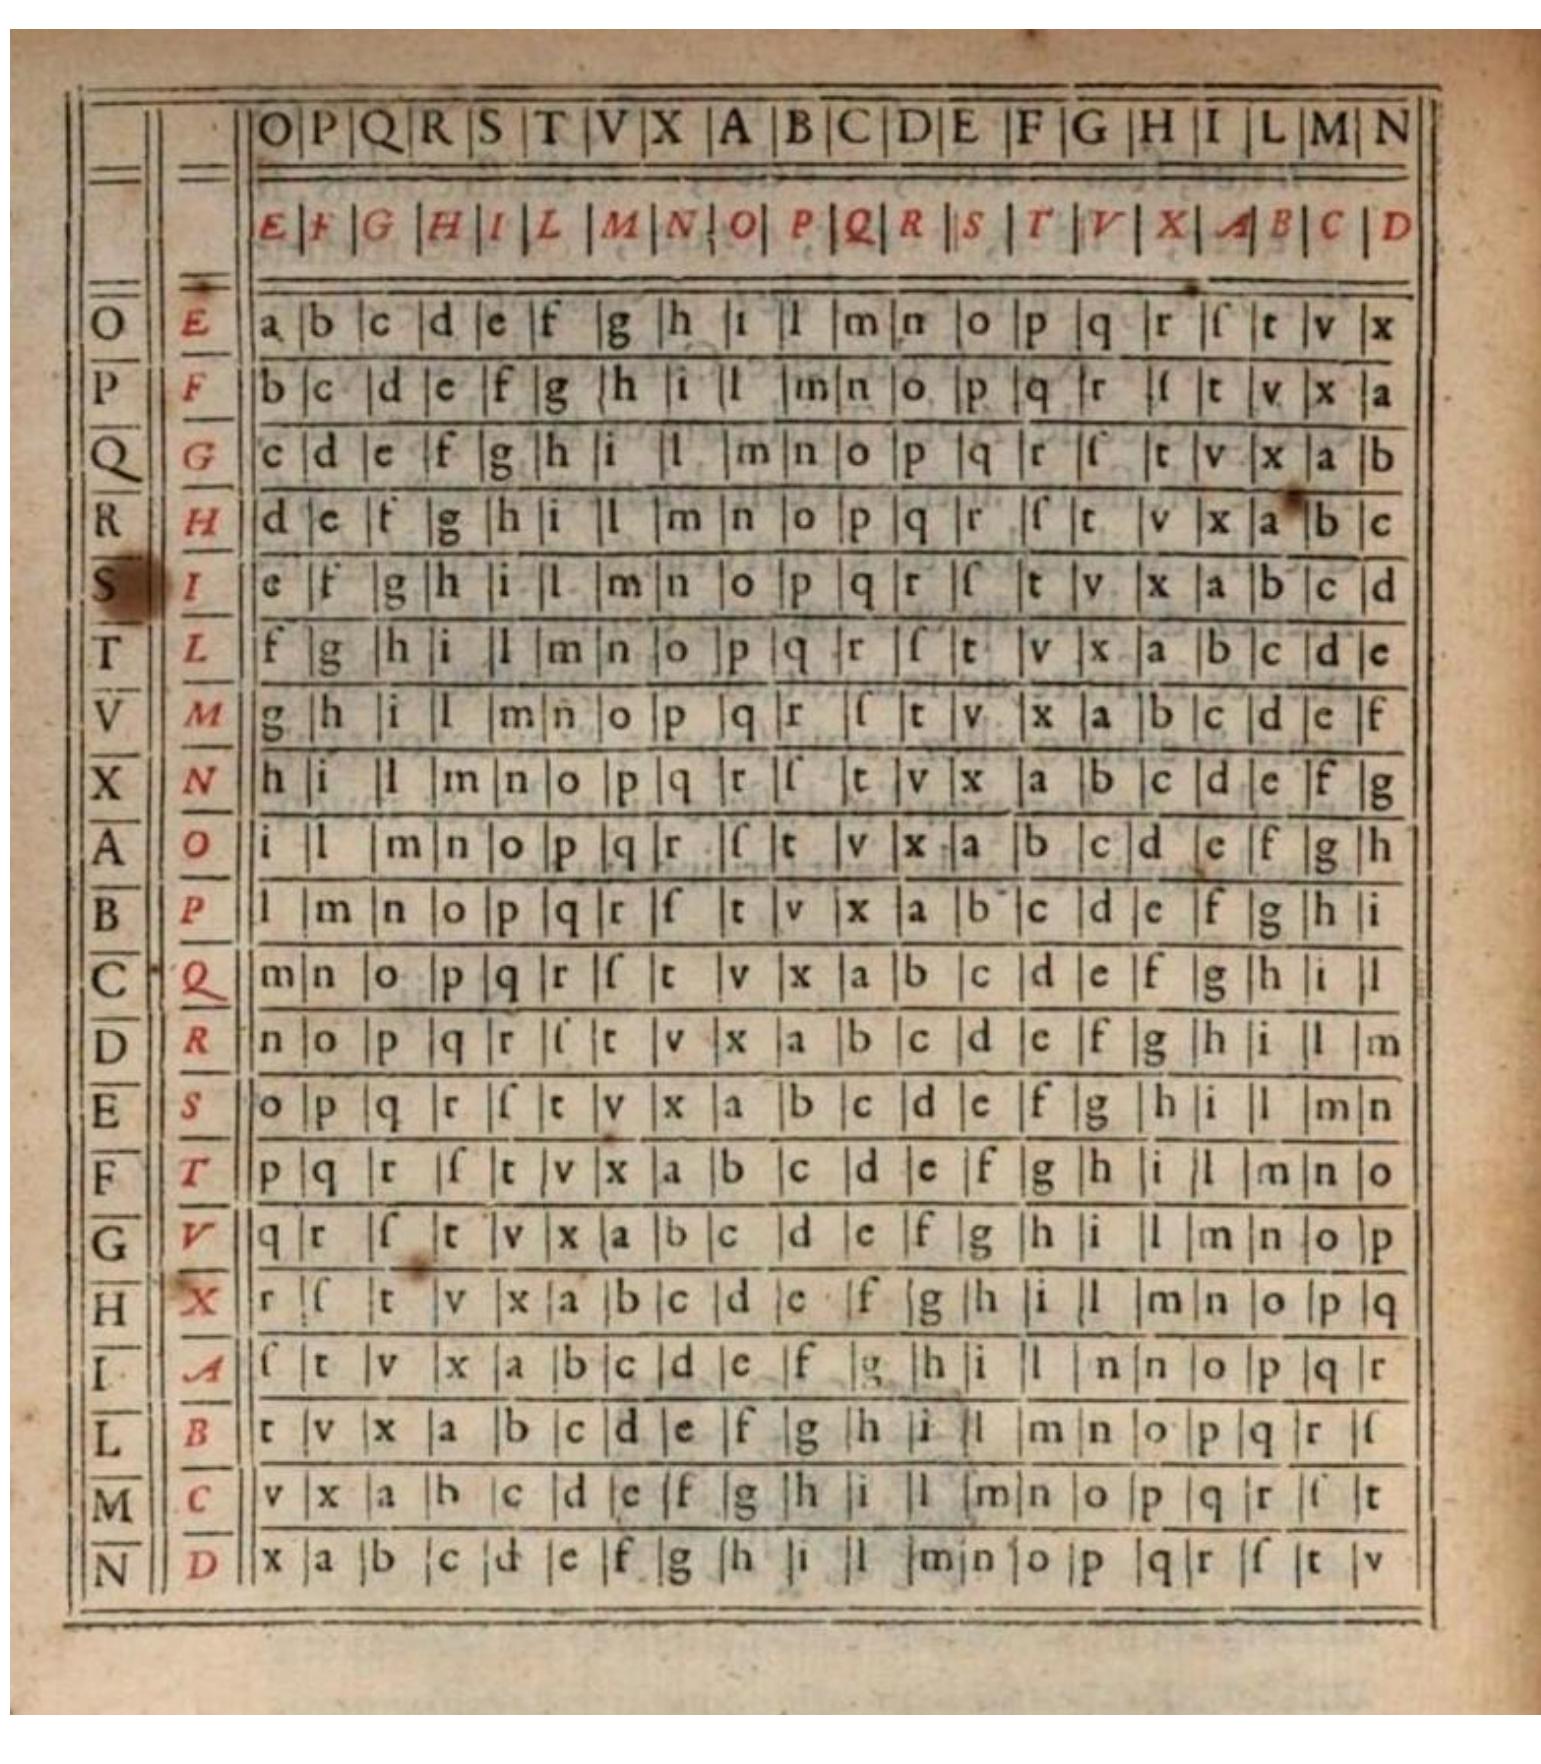 O P Q R S T V X A B C D E F G H I L M N
E F G H I L M N O P Q R S T V X A B C D
O E a b c d e f g h i l m n o p q r ſ t v x
P F b c d e f g h i l m n o p q r ſ t v x a
Q G c d e f g h i l m n o p q r ſ t v x a b
R H d e f g h i l m n o p q r ſ t v x a b c
S I e f g h i l m n o p q r ſ t v x a b c d
T L f g h i l m n o p q r ſ t v x a b c d e
V M g h i l m n o p q r ſ t v x a b c d e f
X N h i l m n o p q r ſ t v x a b c d e f g
A O i l m n o p q r ſ t v x a b c d e f g h
B P l m n o p q r ſ t v x a b c d e f g h i
C Q m n o p q r ſ t v x a b c d e f g h i l
D R n o p q r ſ t v x a b c d e f g h i l m
E S o p q r ſ t v x a b c d e f g h i l m n
F T p q r ſ t v x a b c d e f g h i l m n o
G V q r ſ t v x a b c d e f g h i l m n o p
H X r ſ t v x a b c d e f g h i l m n o p q
I A ſ t v x a b c d e f g h i l n n o p q r
L B t v x a b c d e f g h i l m n o p q r ſ
M C v x a b c d e f g h i l m n o p q r ſ t
N D x a b c d e f g h i l m n o p q r ſ t v